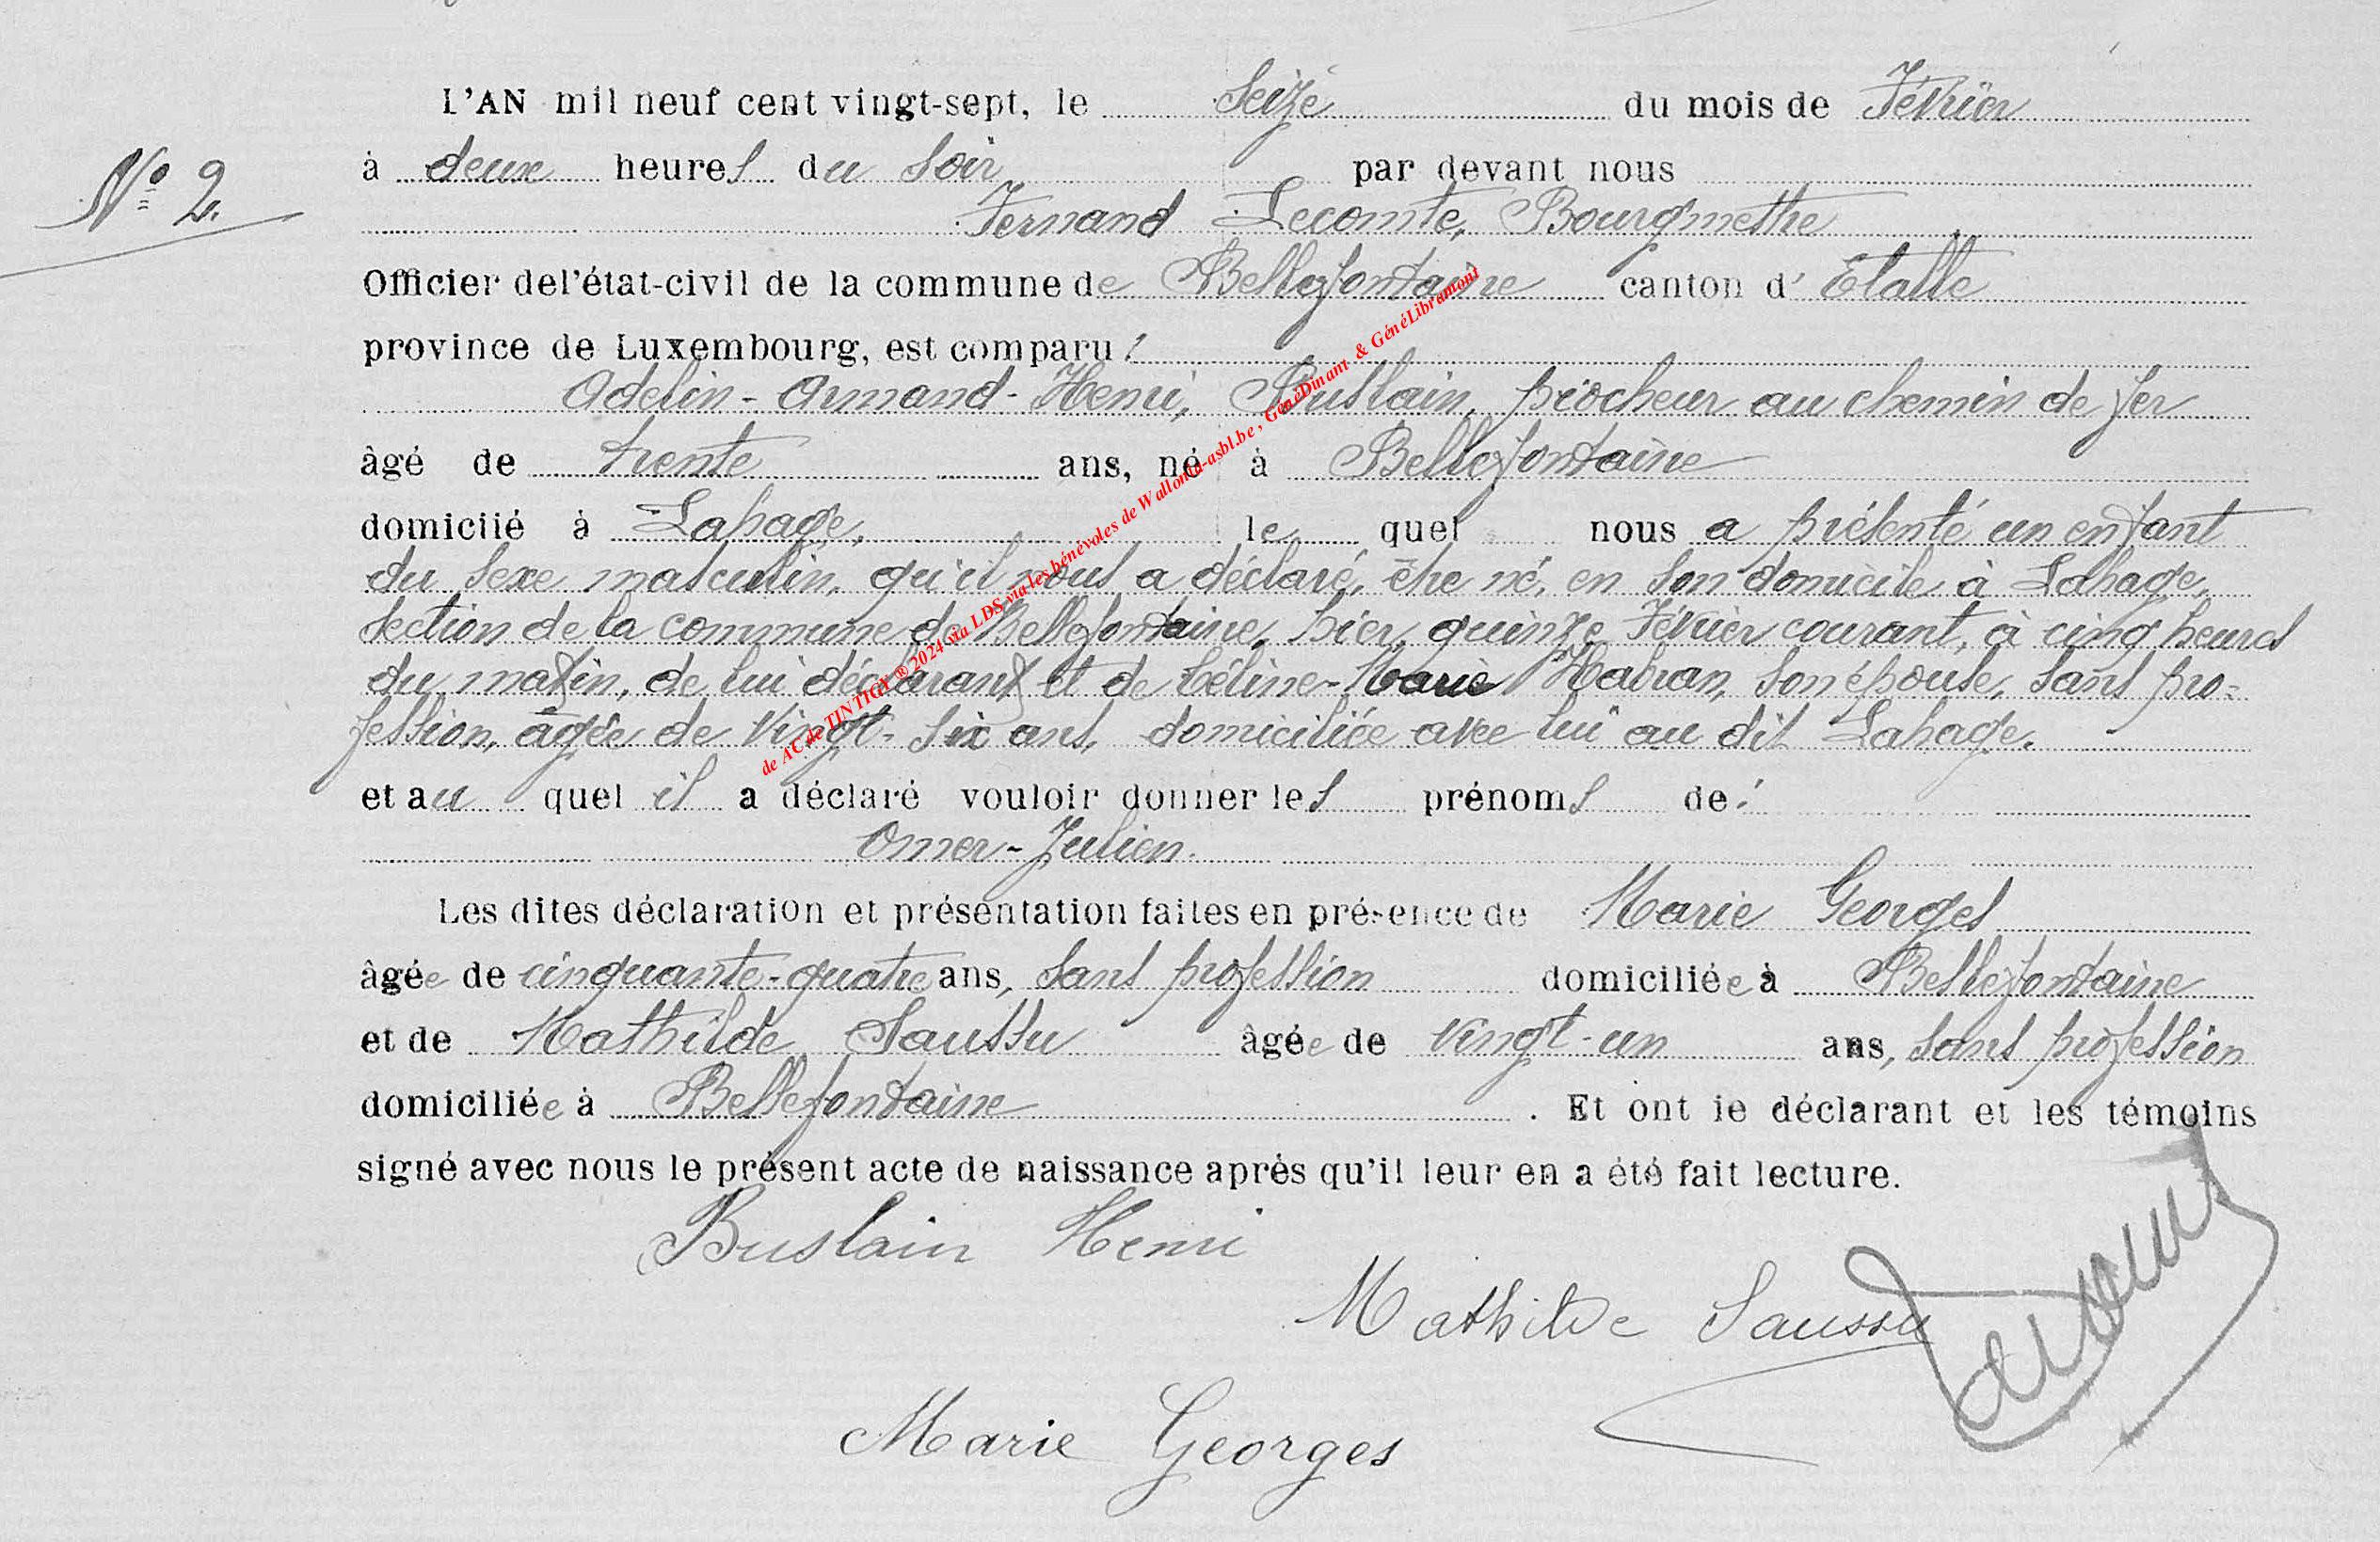 L'AN mil neuf cent vingt-sept, le Seize du mois de Février
N° 2.
à deux heures du Soir par devant nous
Fernand Lecomte, Bourgmestre
Officier de l'état-civil de la commune de Bellefontaine canton d' Etalle
province de Luxembourg, est comparu :
Adelin - Armand - Henri, Buslain, piocheur au chemin de fer
âgé de trente ans, né à Bellefontaine
domicilié à Lahage, le quel nous a présenté un enfant
du sexe masculin, qu'il nous a déclaré, être né, en son domicile à Lahage,
section de la commune de Bellefontaine, hier, quinze Février courant, à cinq heures
du matin, de lui déclarant et de Céline-Marie Habran, son épouse, sans pro=
fession, âgée de vingt-six ans, domiciliée avec lui au dit Lahage.
et au quel il a déclaré vouloir donner les prénoms de :
Omer-Julien.
Les dites déclaration et présentation faites en présence de Marie Georges
âgée de cinquante-quatre ans, sans profession domiciliée à Bellefontaine
et de Mathilde Saussu âgée de vingt-un ans, sans profession
domiciliée à Bellefontaine . Et ont le déclarant et les témoins
signé avec nous le présent acte de naissance après qu'il leur en a été fait lecture.
Buslain Henri
Mathilde Saussu
Marie Georges
de AC de TINTIGY ® 2024 via LDS via les bénévoles de Wallonia-asbl.be , GénéDinant & GénéLibramont